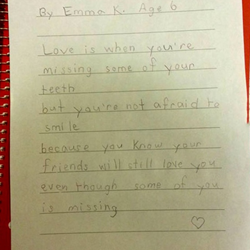 By Emma K. Age 6
Love is when you're
missing some of your
teeth
but you're not afraid to
smile
because you know your
friends will still love you
even though some of you
is missing